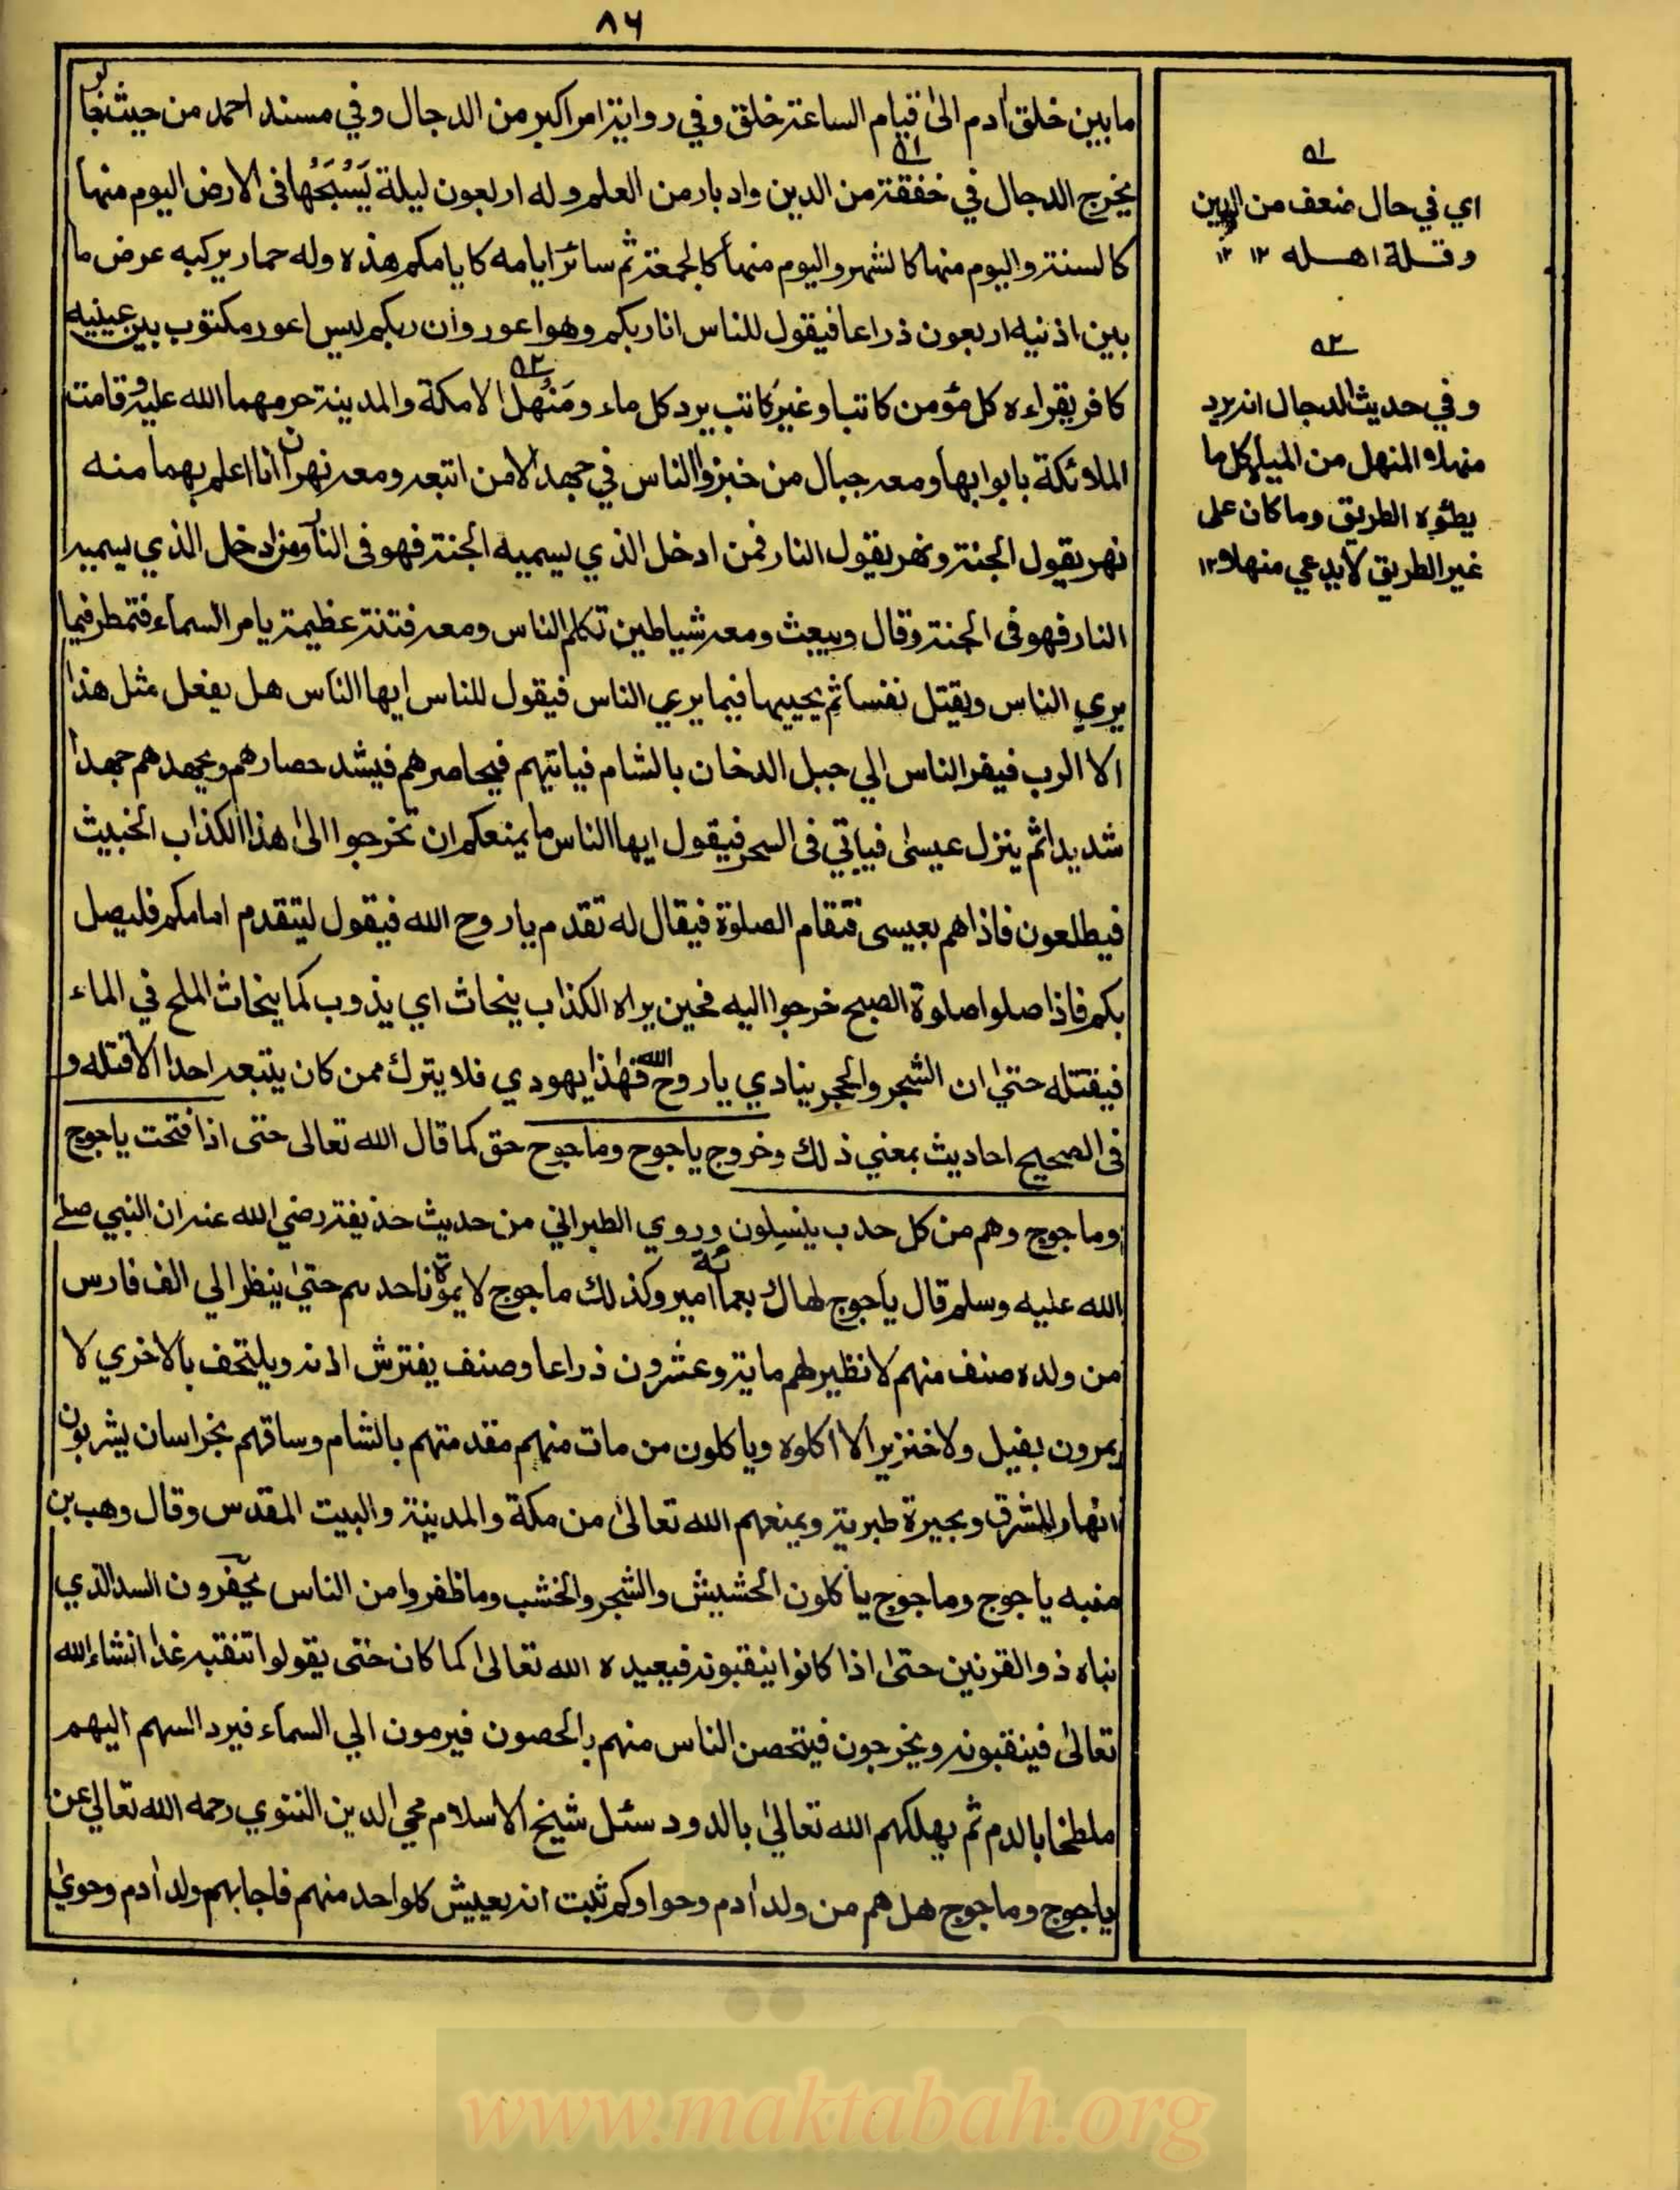 ٨٦
ما بين خلق آدم الى قيام الساعة خلق وفي رواية امر اكبر من الدجال وفي مسند احمد من حيث جابر
يخرج الدجال في خفقة من الدين وادبار من العلم وله اربعون ليلة يَسُبَحُها فى الارض اليوم منها
كالسنة واليوم منها كالشهر واليوم منها كالجمعة ثم سائر ايامه كايامكم هذه وله حمار يركبه عرض ما
بين اذنيه اربعون ذراعا فيقول للناس انا ربكم وهو اعور وان ربكم ليس اعور مكتوب بين عينيه
كافر يقراءه كل مؤمن كاتبا وغير كاتب يرد كل ماء ومَنْهل الا مكة والمدينة حرمهما الله عليه وقامت
الملائكة بابوابها ومعه جبال من خبز والناس في جهد الا من اتبعه ومعه نهران انا اعلم بهما منه
نهر يقول الجنة ونهر يقول النار فمن ادخل الذي يسميه الجنة فهو فى النار ومن ادخل الذي يسميه
النار فهو فى الجنة وقال ويبعث ومعه شياطين تكلم الناس ومعه فتنة عظيمة يامر السماء فتمطر فيما
يري الناس ويقتل نفسا ثم يحييها فيما يري الناس فيقول للناس ايها الناس هل يفعل مثل هذا
الا الرب فيفر الناس الي جبل الدخان بالشام فياتيهم فيحاصرهم فيشد حصارهم ويجهدهم جهدا
شديدا ثم ينزل عيسى فياتي فى السحر فيقول ايها الناس ما يمنعكم ان تخرجوا الى هذا الكذاب الخبيث
فيطلعون فاذاهم بعيسى فتقام الصلوة فيقال له تقدم ياروح الله فيقول ليتقدم امامكم فليصل
بكم فاذا صلوا صلوة الصبح خرجوا اليه فحين يراه الكذاب ينحاث اي يذوب كما ينحاث الملح في الماء
فيقتله حتي ان الشجر والحجر ينادي ياروح الله فهذا يهودي فلا يترك ممن كان يتبعه احدا الا قتله و
فى الصحيح احاديث بمعني ذلك وخروج ياجوج وماجوج حق كما قال الله تعالى حتى اذا فتحت ياجوج
وماجوج وهم من كل حدب ينسلون وروي الطبراني من حديث حذيفة رضي الله عنه ان النبي صلے
الله عليه وسلم قال ياجوج لها اربعمائة امير وكذلك ماجوج لا يموت احدهم حتي ينظر الي الف فارس
من ولده صنف منهم لا نظير لهم ماية وعشرون ذراعا وصنف يفترش اذنه ويلتحف بالاخري لا
يمرون بفيل ولا خنزير الا اكلوه وياكلون من مات منهم مقدمتهم بالشام وساقهم بخراسان يشربون
انهار المشرق وبحيرة طبرية ويمنعهم الله تعالى من مكة والمدينة والبيت المقدس وقال وهب بن
منبه ياجوج وماجوج ياكلون الحشيش والشجر والخشب وما ظفروا من الناس يحفرون السد الذي
بناه ذو القرنين حتى اذا كانوا ينقبونه فيعيده الله تعالى كما كان حتى يقولوا تنقبه غدا انشاء الله
تعالى فينقبونه ويخرجون فيتحصن الناس منهم بالحصون فيرمون الي السماء فيرد السهم اليهم
ملطخا بالدم ثم يهلكهم الله تعالى بالدود سئل شيخ الاسلام محي الدين النووي رحمه الله تعالي عن
ياجوج وماجوج هل هم من ولد آدم وحوا وكم ثبت انه يعيش كلواحد منهم فاجابهم ولد آدم وحوي
ه١
اي في حال ضعف من الدين
وقلة اهله ١٢ ١٢
ه٢
وفي حديث الدجال انه يرد
منهلا المنهل من المياه كل ما
يطؤه الطريق وما كان على
غير الطريق لا يدعي منهلا ١٢
www.maktabah.org